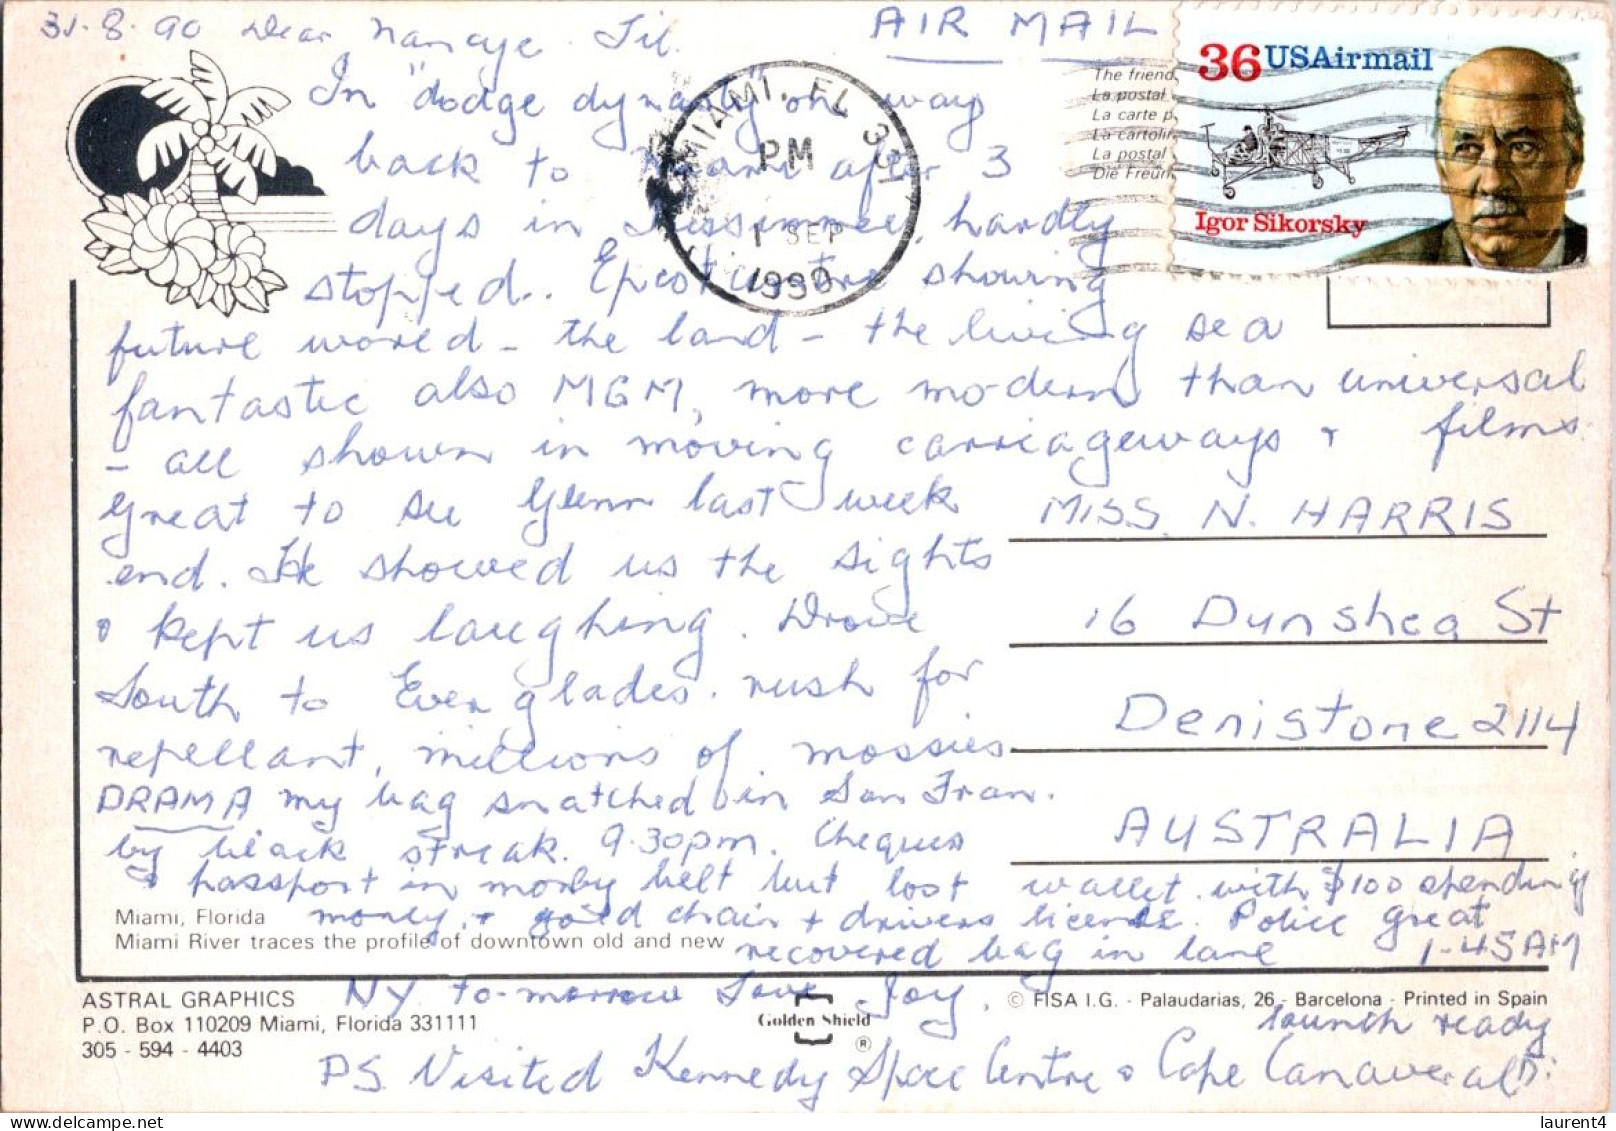 31-8-90 Dear Nancye Jil.
AIR MAIL
36 USAirmail
Igor Sikorsky
The friend
La postal
La carte p
La cartolin
La postal
Die Freun
MIAMI, FL 331
PM
1 SEP
1990
In "dodge dynasty" on way
back to Miami after 3
days in Kissimmee, hardly
stopped.. Epcot showing
future world - the land - the living sea
fantastic also MGM, more modern than universal
- all shown in moving carriageways & films
Great to see Glenn last week
end. He showed us the sights
& kept us laughing. Drove
South to Everglades. rush for
repellant, millions of mossies
DRAMA my bag snatched in San Fran.
by black streak. 9.30pm. Cheques
& passport in money belt but lost wallet with $100 spending
money, + gold chain + drivers license. Police great
recovered bag in lane 1-45AM
NY to-morrow Love Joy.
PS Visited Kennedy Space Centre & Cape Canaveral
launch ready
MISS N. HARRIS
16 Dunshea St
Denistone 2114
AUSTRALIA
Miami, Florida
Miami River traces the profile of downtown old and new
ASTRAL GRAPHICS
P.O. Box 110209 Miami, Florida 331111
305 - 594 - 4403
Golden Shield
®
© FISA I.G. - Palaudarias, 26 - Barcelona - Printed in Spain
laurent4